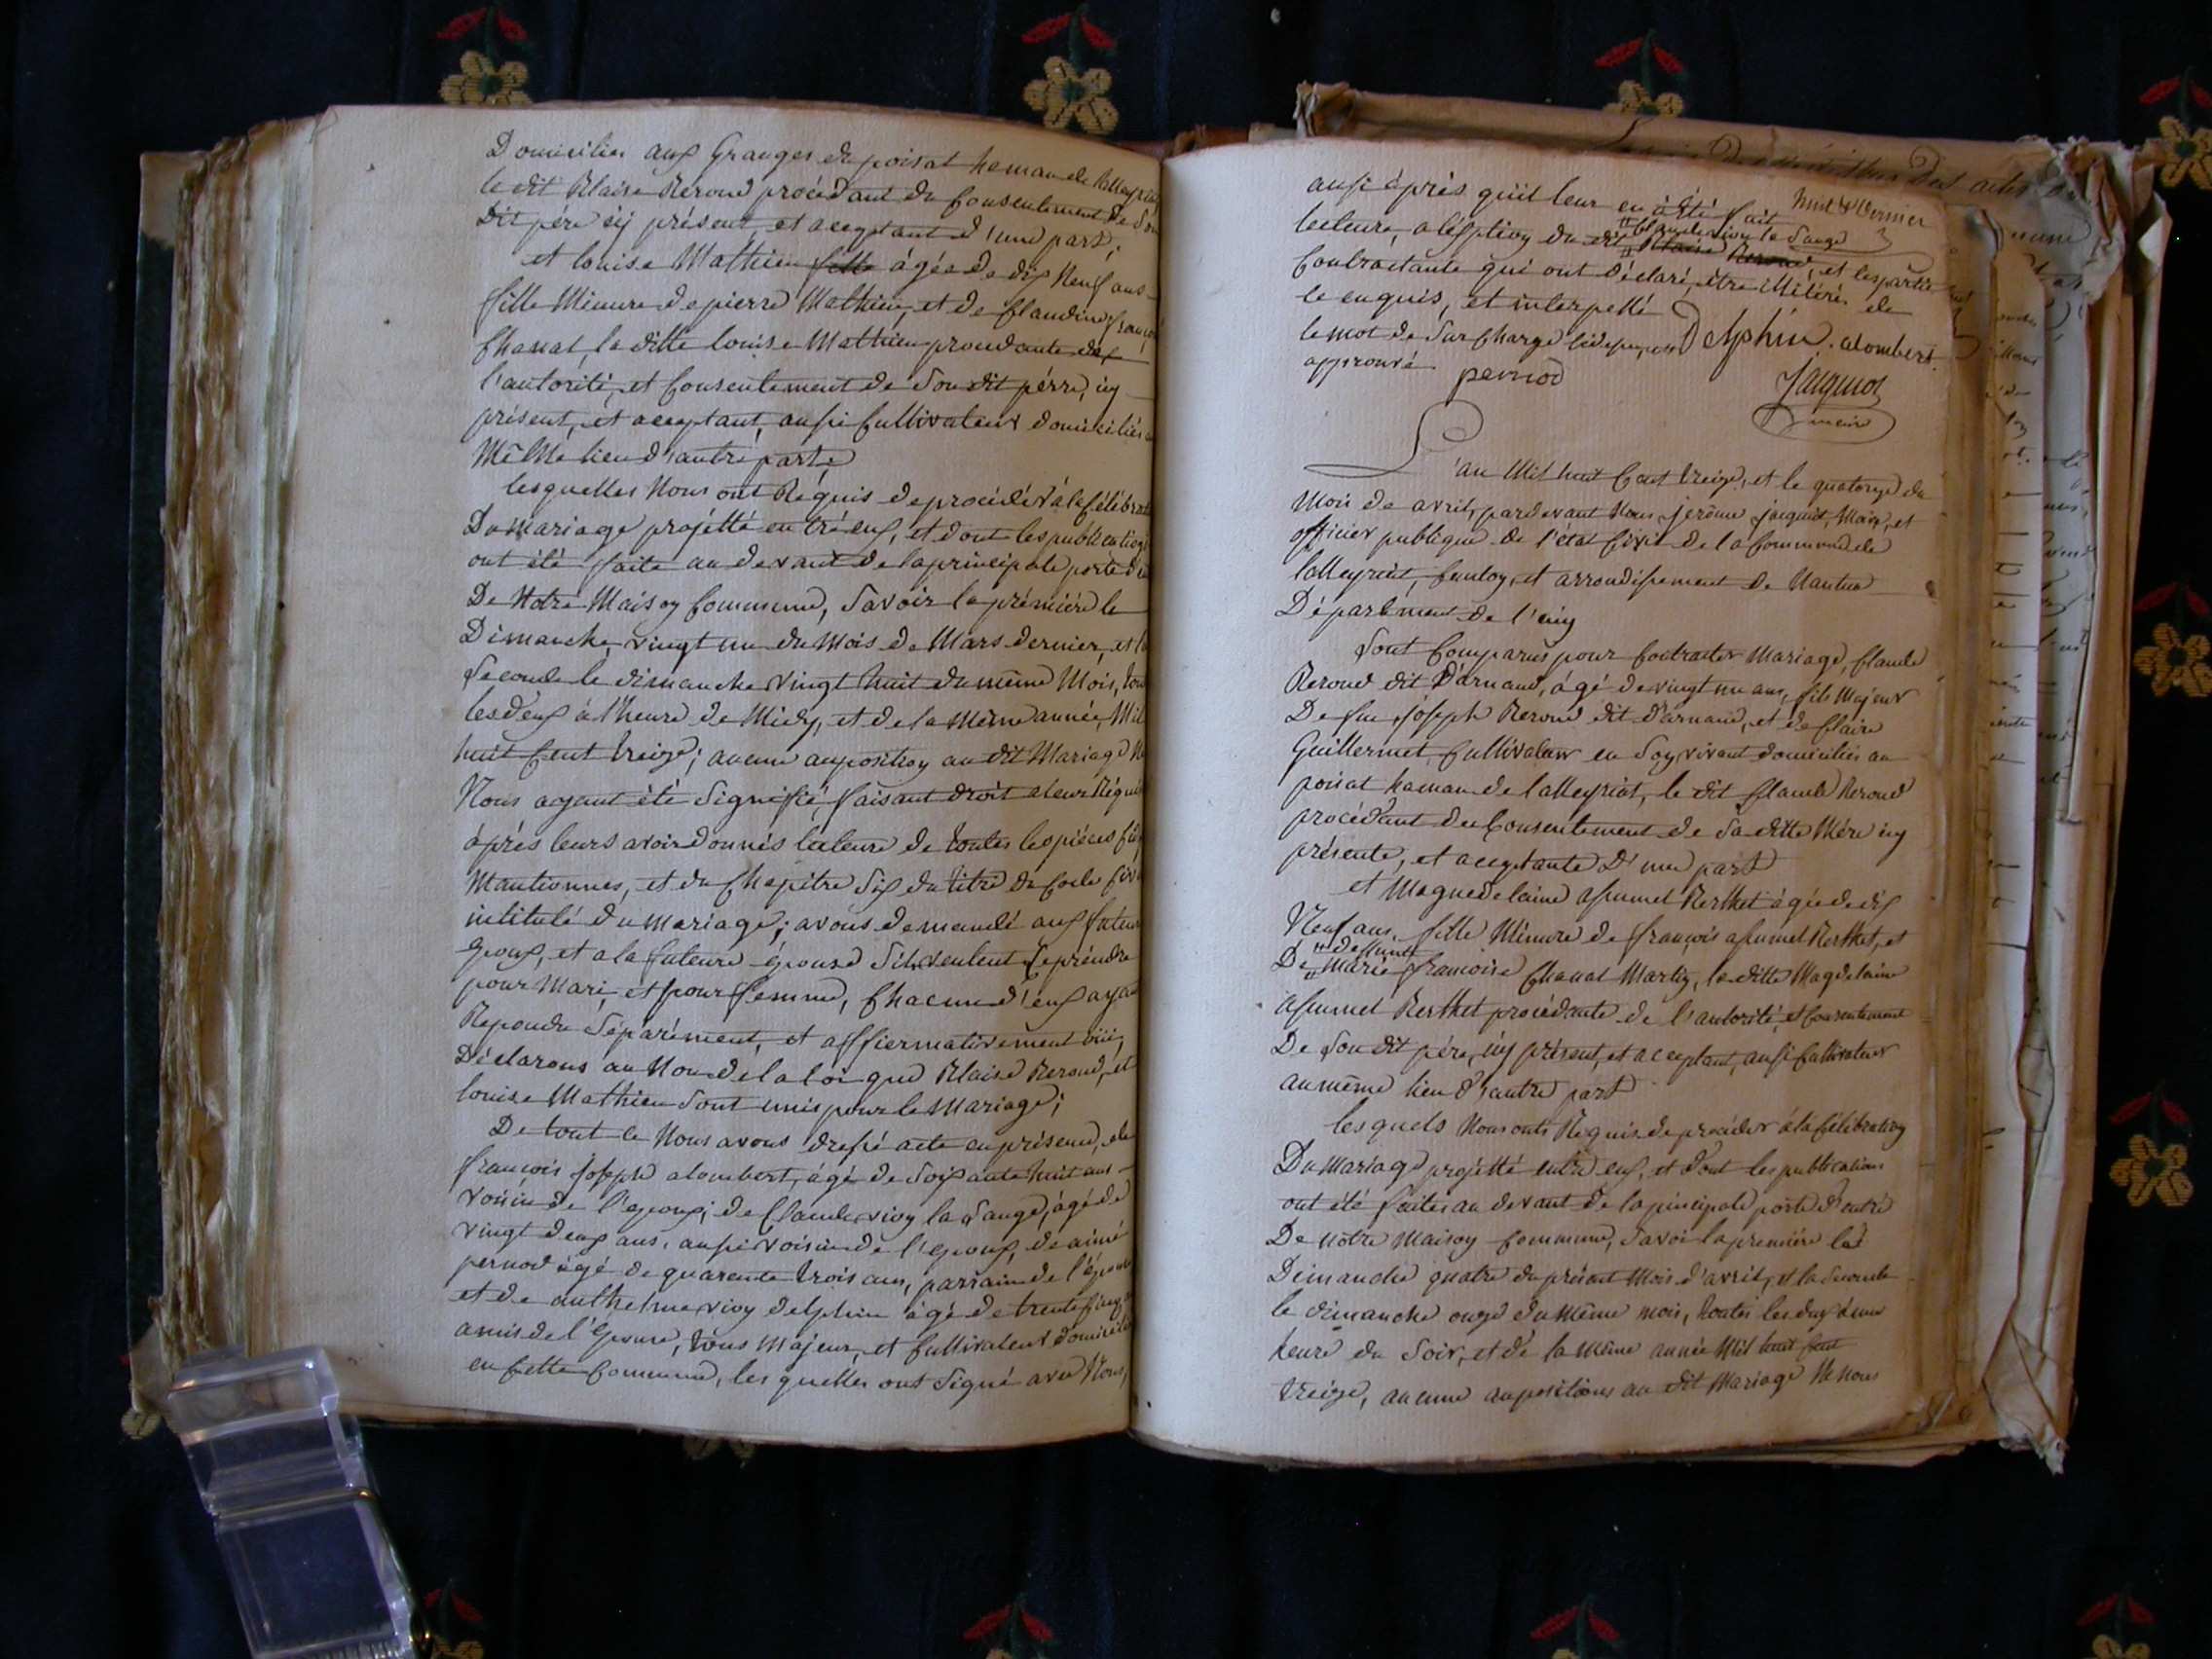 Domiciliés aux Granges du poisat hamau de lalleyriat
le dit Blaise Reroud procédant du Consentement de Son
Dit père icy présent, et acceptant d'une part,
et louise Mathieu fille àgée de dix Neuf ans
fille Mineure de pierre Mathieu, et de Claudine françoise
Chanal, la ditte louise Mathieu procedante de
l'autorité, et Consentement de Son dit pérre, icy
présent, et acceptant, aussi Cultivateur domiciliés au
Mê Me lieu d'autre parte
lesquelles Nous ont Réquis de procédér à la Célébration
Du mariage projétté entré eux, et dont les publications
ont été faite au devant de la principale porte d'en
De Notre Maison Commune, Savoir la prémière le
Dimanche, vingt un du Mois de Mars dernier, et la
Seconde le dimanche vingt huit du même Mois, tou
les deux à l'heure de Midy, et de la Même année, Mil
huit Cent treize; aucune auposition au dit Mariage Ne
Nous ayant été Signifié, faisant droit a leur Réqui
àprès leurs avoir donnés lecteure de toutes les pièces Ci
Mantionnés, et du Chapitre Six du titre du Code Civil
intitulé du mariage; avons demandé aux futeur
Epoux, et a la futeure épouse S'ils veulent Se préndre
pour Mari, et pour femme, Chacun d'eux ayant
Repondu Séparément, et affiermativement oui,
Déclarons au Nom de la loi que Blaise Reroud, et
louise Mathieu Sont unis pour le Mariage;
De tout ce Nous avons dressé acte en présence, de
françois Joseph alombert, àgé de Soixante huit ans
voisin de l'epoux; de Claude vivy la Sauge, àgé de
vingt deux ans, aussi voisin de l'epoux, de aimé
pernod àgé de quarente trois ans, parrain de l'épouse
et de anthelme vivy delphin àgé de trente Cinq
amis de l'Epouse, tous Majeur, et Cultivateur domiciliés
en Cette Commune, les quelles ont Signé avec Nous,
huit & dernier
aussi àprès qu'il leur en à été fait
Claude vivy la Sauge
lecteure, a léxption du dit Blaise Reroud, et les partie
Contractante qui ont déclaré, être illitéré de
le enquis, et interpellé
le mot de Sur Charge Delphin . alombert
approuvé pernod Jacquiot
maire
L'an Mil huit Cent treize, et le quatorze du
Mois de avril, pardevant Nous jerôme jacquiot, Maire, et
officier publique de l'état Civil de la Commune de
lalleyriat, Canton, et arrondissement de Nantua
Département de l'ain
Sont Comparus pour Contracter Mariage, Claude
Reroud dit D'arnaud, àgé de vingt un ans, fils Majeur
De fue Joséph Reroud dit D'arnaud, et de Claire
Guillermet, Cultivateur en Son vivant domiciliés au
poisat hamau de lalleyriat, le dit Claude Reroud
procédant du Consentement de Sa ditte Mére icy
présente, et acceptante D'une part
et Maguedelaine assumel Berthet àgée de dix
Neuf ans fille Mineure de françois assumel Berthet, et
deffunte
De Marie françoise Chanal Martin, la ditte Magdelaine
assumel Berthet procédante de l'autorité, et Consentement
De Son dit pére, icy présent, et acceptant, aussi Cultivateur
au même lieu d'autre part
les quels Nous onts Réquis de procéder à la Célébration
Du Mariage projétté entre eux, et dont les publications
ont été faites au devant de la pincipale porte d'entré
De nôtre Maison Commune, Savoir la première le
Dimanche quatre du présent Mois d'avril, et la Seconde
le dimanche onze du Même mois, toutes les deux à une
heure du Soir, et de la Même année Mil huit Cent
treize, aucune aupositions au dit Mariage Ne nous